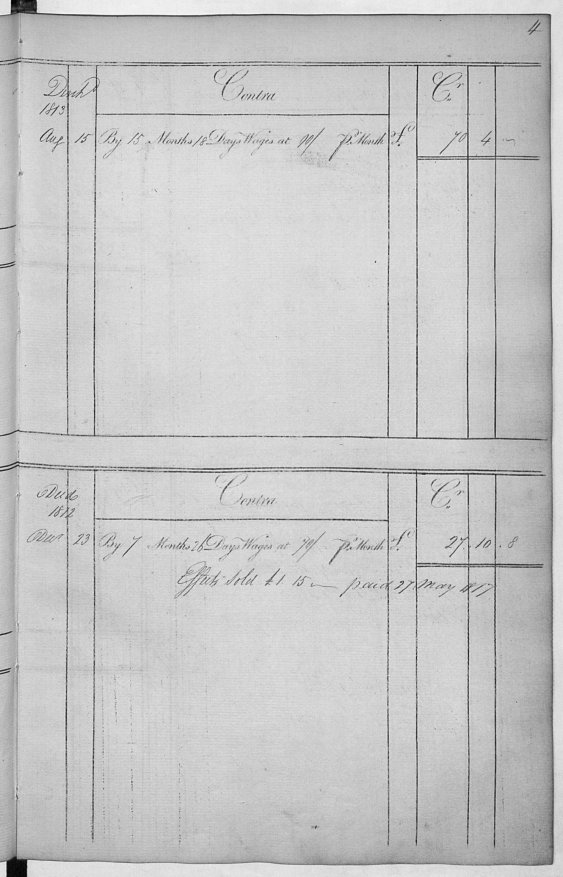 4
Disch^d Contra C^r
1813
Aug 15 By 15 Months 18 Days Wages at 90/ p^r Month £. 70 4 —
Died Contra C^r
1812
Decr 23 By 7 Months 26 Days Wages at 70/ p^r Month £. 27 . 10 . 8
Effects Sold £1 15 — paid 27 May 1817